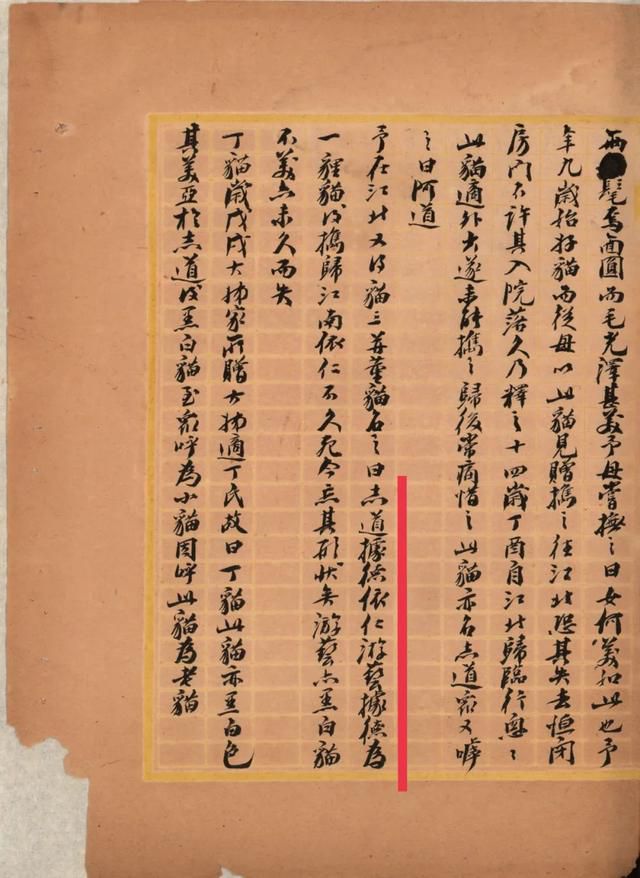 兩髦焉面圓而毛光澤甚美予母嘗撫之曰女何美如此也予
年九歲始好貓而從母以此貓見贈攜之往江北恐其失去恒閉
房門不許其入院落久乃釋之十四歲丁酉自江北歸臨行匆匆
此貓適外出遂未能攜之歸後常痛惜之此貓亦名志道家又嘑
之曰阿道
予在江北又得貓三并董貓名之曰志道據德依仁游藝據德為
一貍貓後攜歸江南依仁不久死今忘其形狀矣游藝亦黑白貓
不美亦未久而失
丁貓歲戊戌大姊家所贈大姊適丁氏故曰丁貓此貓亦黑白色
其美亞於志道後黑白貓至家呼為小貓因呼此貓為老貓